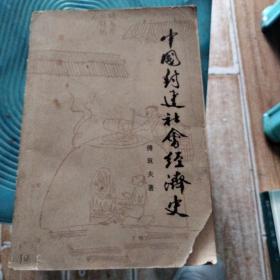 中國封建社會經濟史
傅筑夫著